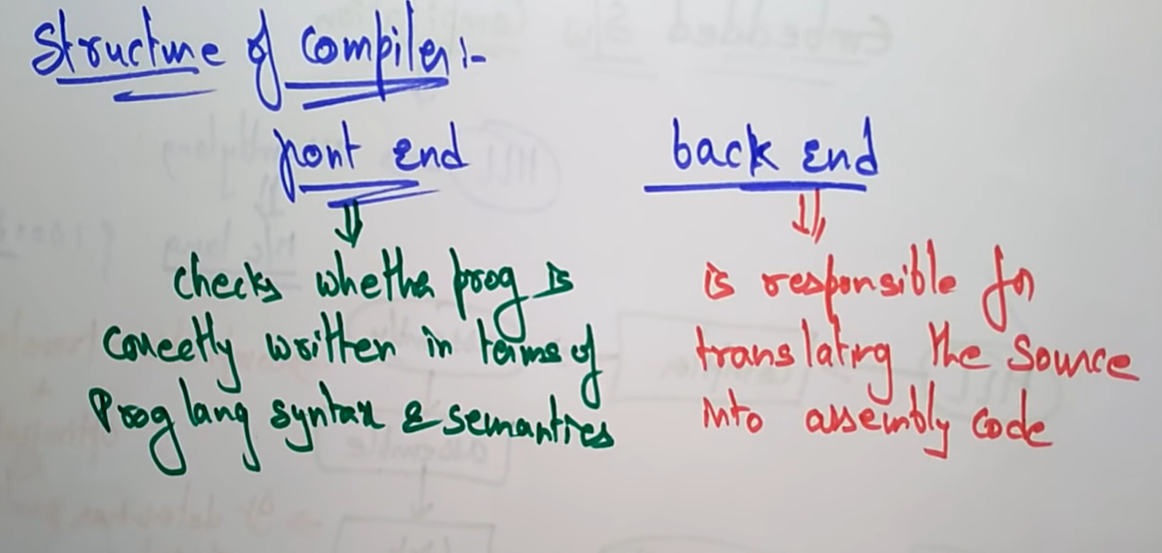 Structure of compiler:-
front end
back end
checks whether prog is
correctly written in terms of
Prog lang syntax & semantics
is responsible for
translating the source
into assembly code